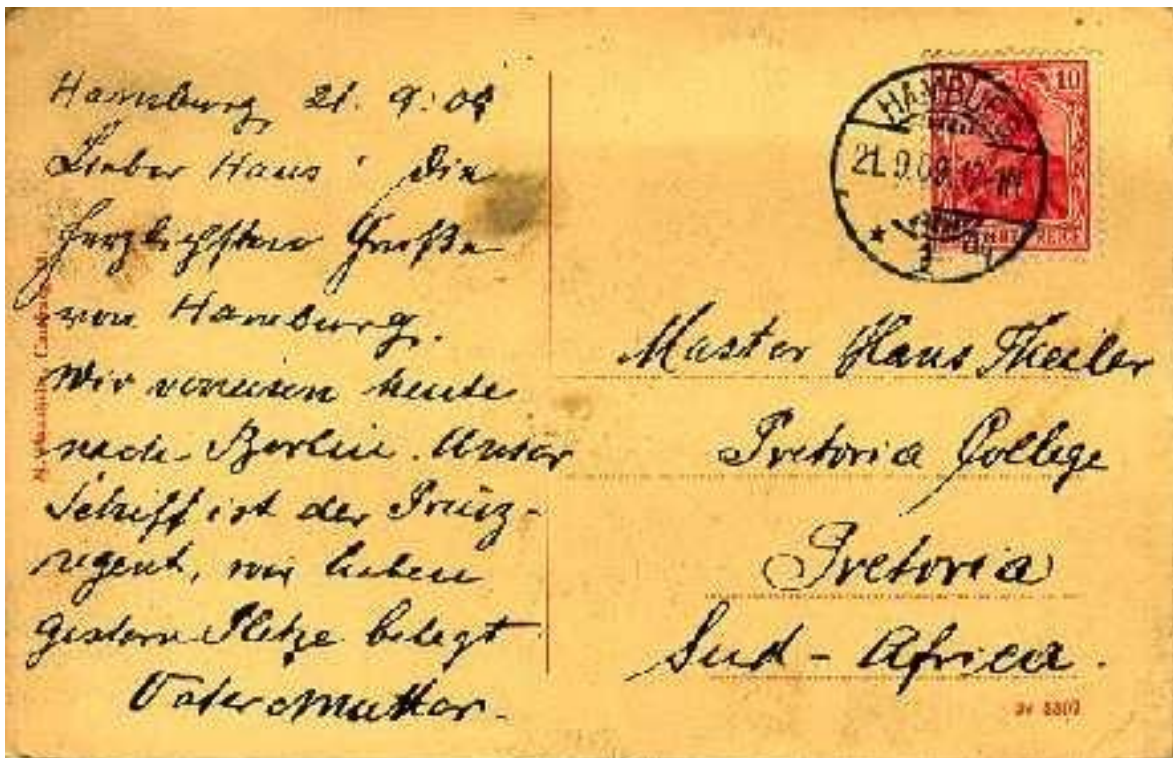 Hamburg, 21. 9. 09
Lieber Hans! Die
herzlichsten Grüße
von Hamburg.
Wir verreisen heute
nach Berlin. Unser
Schiff ist der Prinz-
regent, wir haben
gestern Pletze belegt
Vater & Mutter.
HAMBURG
21.9.09. 12-1N
10
REICH
Master Hans Theiler
Pretoria College
Pretoria
Sud-Africa.